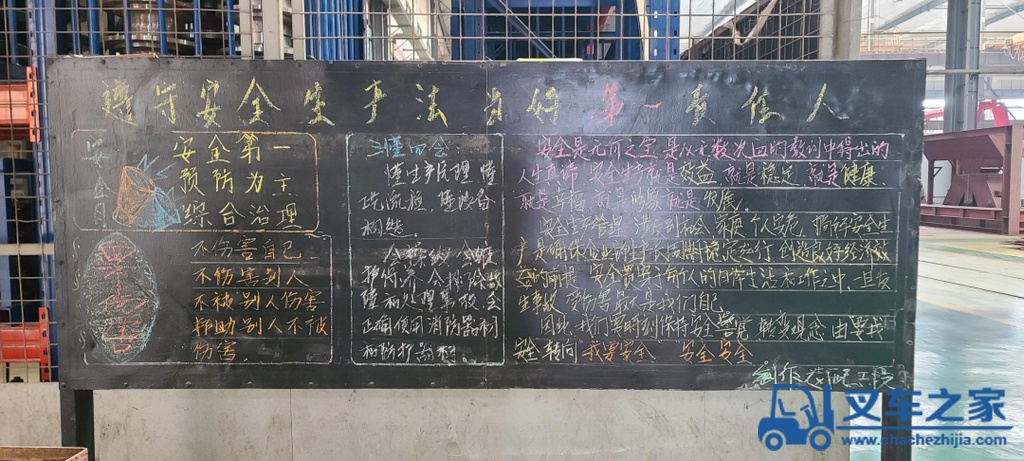 遵守安全生产法 当好第一责任人
安全月
安全第一
预防为主
综合治理
不伤害自己
不伤害别人
不被别人伤害
帮助别人不被
伤害
三懂四会:
懂生产原理 懂
工艺流程 懂设备
构然
会排除故
障和处理事故 会
正确使用消防器材
和防护器材
安全是无价之宝 是从无数次血的教训中得出的
人生真谛 安全生产就是效益 就是稳定 就是健康
就是幸福 就是 就是发展
安全生产管理 涉及到社会 家庭 个人安危 搞好安全生
产是确保企业
的前提 安全贯穿于每个人的日常生活和工作之中 且发
生事故 受伤害的 是我们自己
因此 我们要时刻保持安全警觉 转变观念 由要我
安全 转向 "我要安全" 安全 安全
制作 装配工段
叉车之家
www.chachezhijia.com